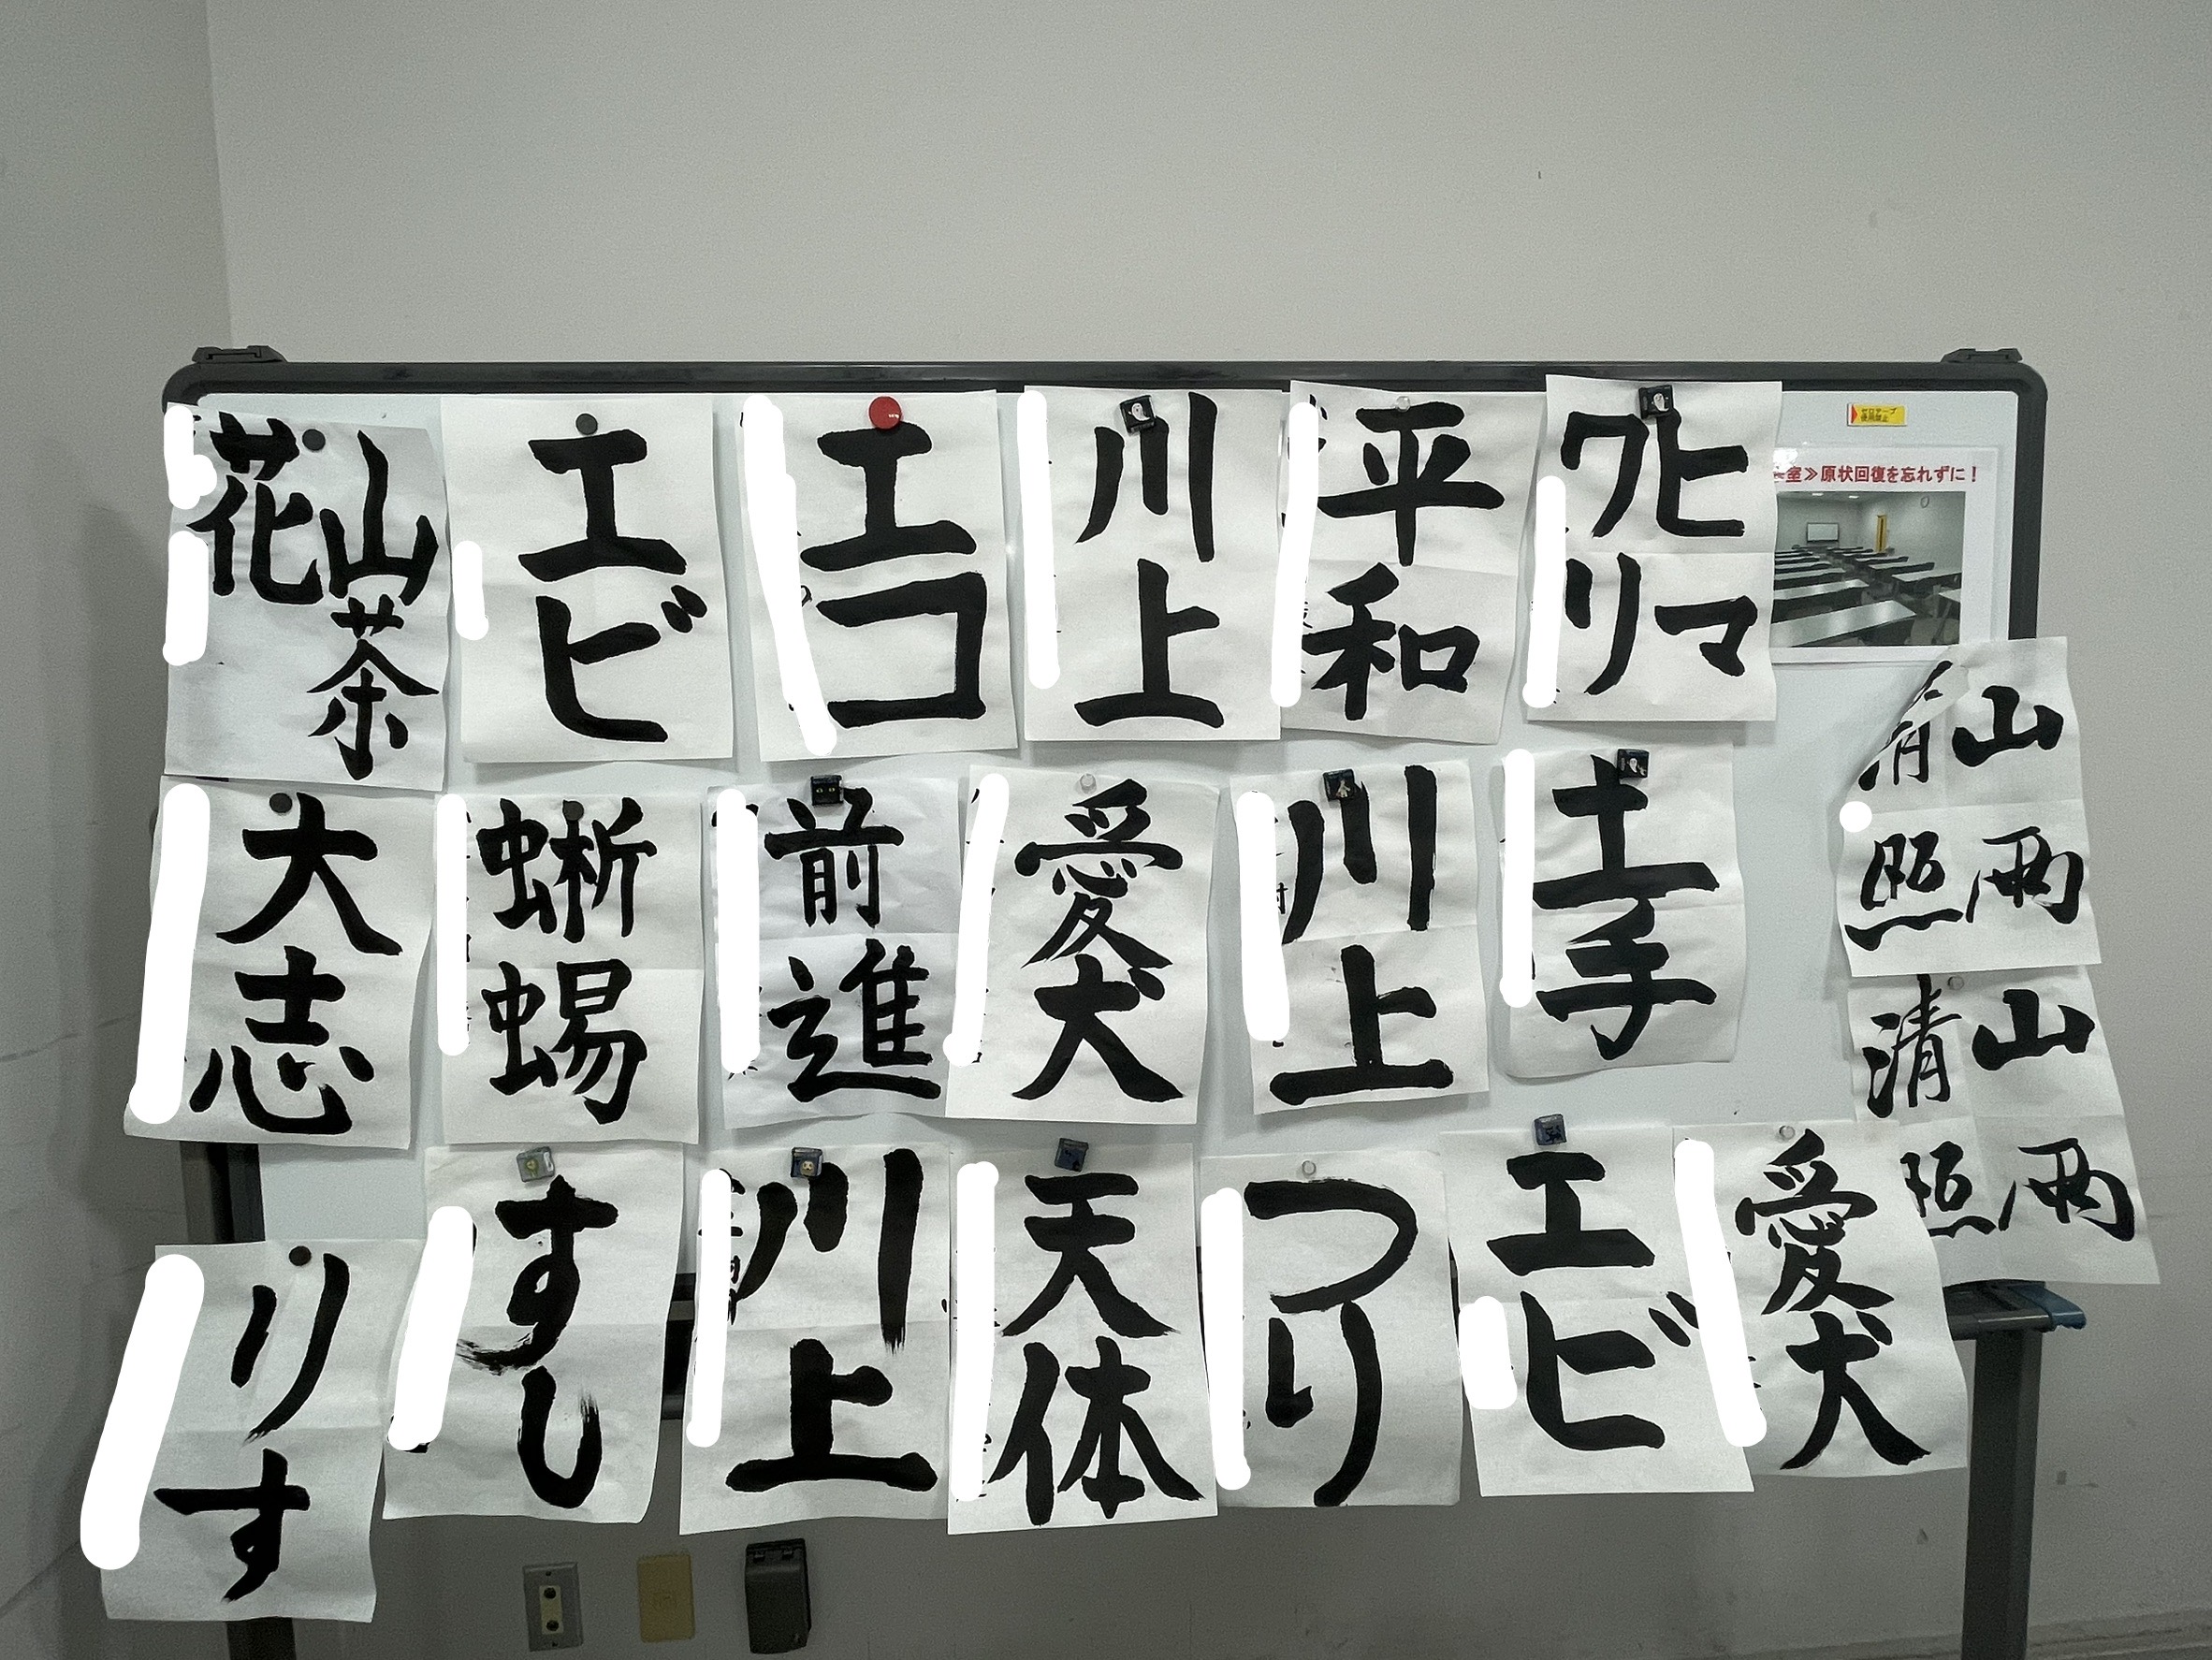 山茶
花
エビ
エコ
川上
平和
ヒマ
ワリ
セロテープ
使用禁止
室≫原状回復を忘れずに！
山雨
清照
大志
蜥蜴
前進
愛犬
川上
土手
山雨
清照
りす
すし
川上
天体
つり
エビ
愛犬